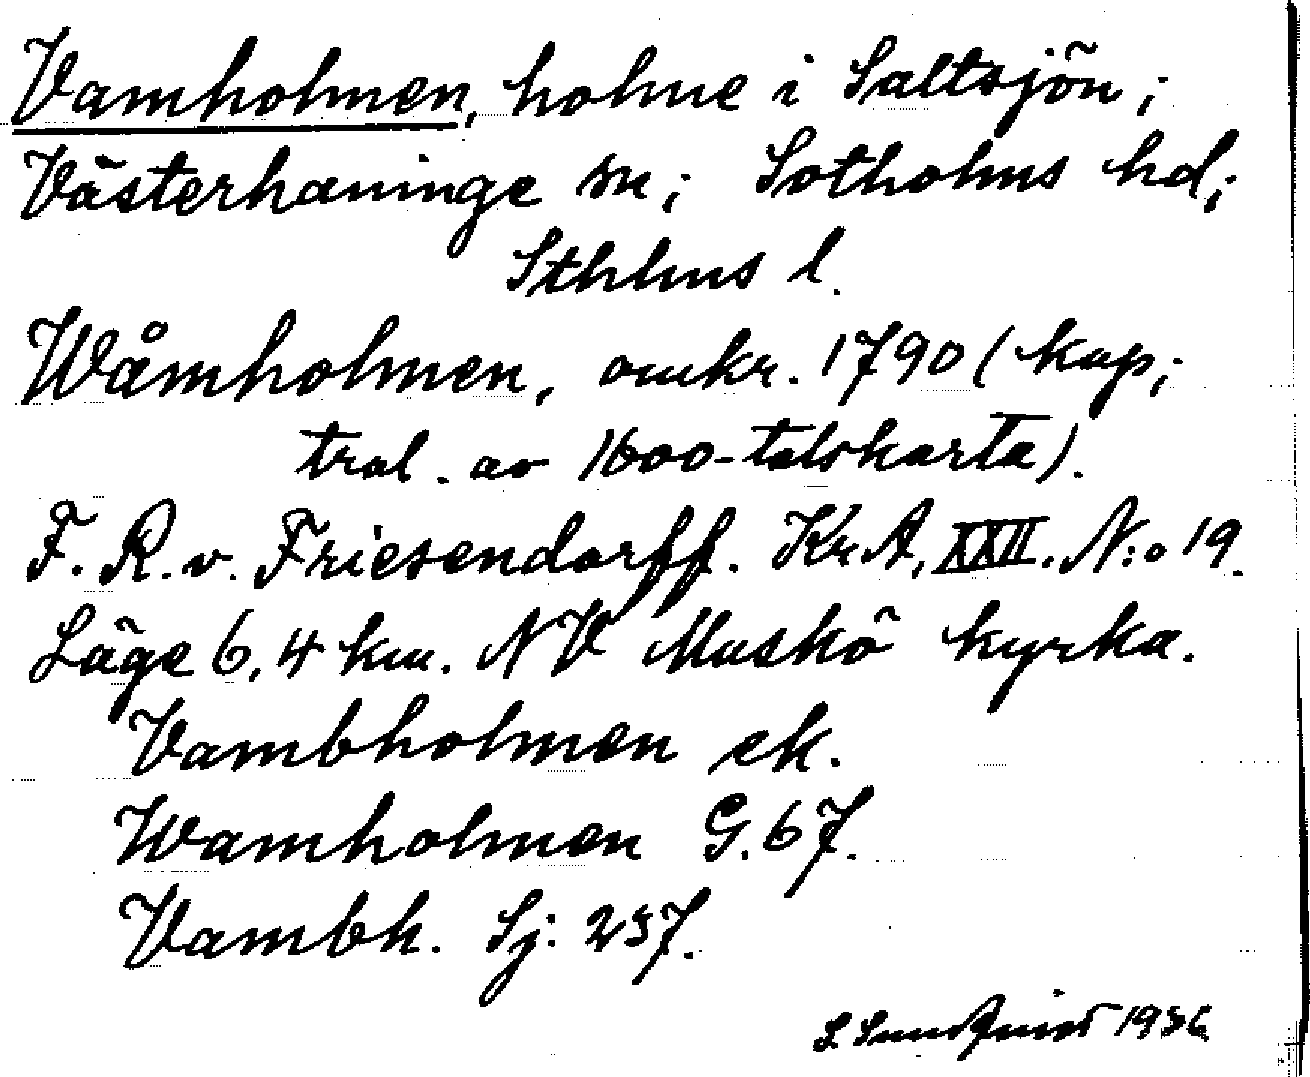 Vamholmen, holme i Saltsjön;
Västerhaninge sn; Sotholms hd;
Sthlms l.
Wåmholmen, omkr. 1790 (kop;
tral. av 1600-talskarta).
F. R. v. Friesendorff. Kr A, XXII. N:o 19.
Läge 6,4 km. NV Muskö kyrka.
Vambholmen ek.
Wamholmen G. 67.
Vambh. Sj. 237.
S. Sundqvist 1936